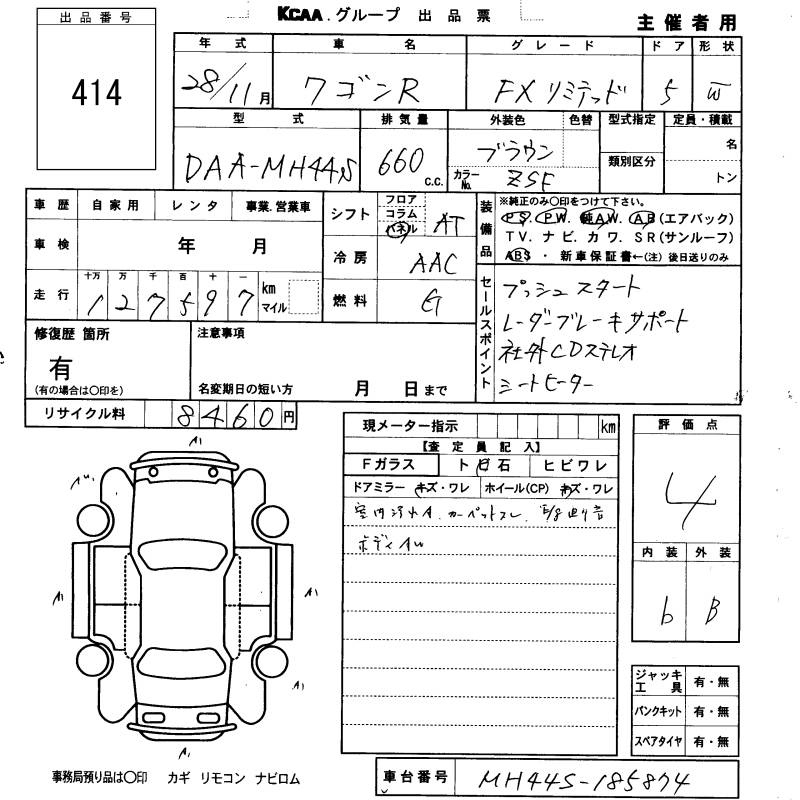 KCAA.グループ 出品票
主催者用
出品番号
414
年式 車名 グレード ドア 形状
28/11月 ワゴンR FXリミテッド 5 W
型式 排気量 外装色 色替 型式指定 定員・積載
DAA-MH44S 660 c.c. ブラウン 名
カラーNo. ZSF 類別区分 トン
車歴 自家用 レンタ 事業.営業車
車検 年 月
走行 十万 万 千 百 十 一
127597 km マイル
シフト フロア コラム パネル AT
冷房 AAC
燃料 G
装備品 ※純正のみ○印をつけて下さい。
PS. PW. 純AW. AB(エアバック)
TV. ナビ. カワ. SR(サンルーフ)
ABS ・ 新車保証書←(注) 後日送りのみ
セールスポイント
プッシュスタート
レーダーブレーキサポート
社外CDステレオ
シートヒーター
修復歴 箇所
有
(有の場合は○印を)
注意事項
名変期日の短い方 月 日まで
リサイクル料 8460円
現メーター指示 km
【査定員記入】
Fガラス ト ビ 石 ヒビワレ
ドアミラー キズ・ワレ ホイール(CP) キズ・ワレ
室内汚れA. カーペットスレ.
ボディAW
評価点
4
内装 外装
b B
ジャッキ工具 有・無
パンクキット 有・無
スペアタイヤ 有・無
A1
AW
A1
A1
A1
A1
A1
事務局預り品は○印 カギ リモコン ナビロム
車台番号 MH44S-185874